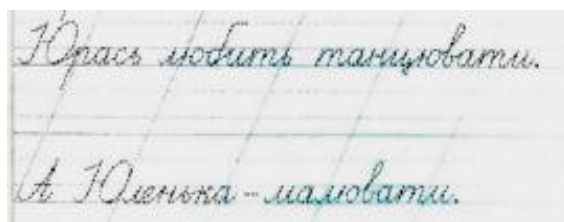 Юрась любить танцювати.
А Юленька - малювати.